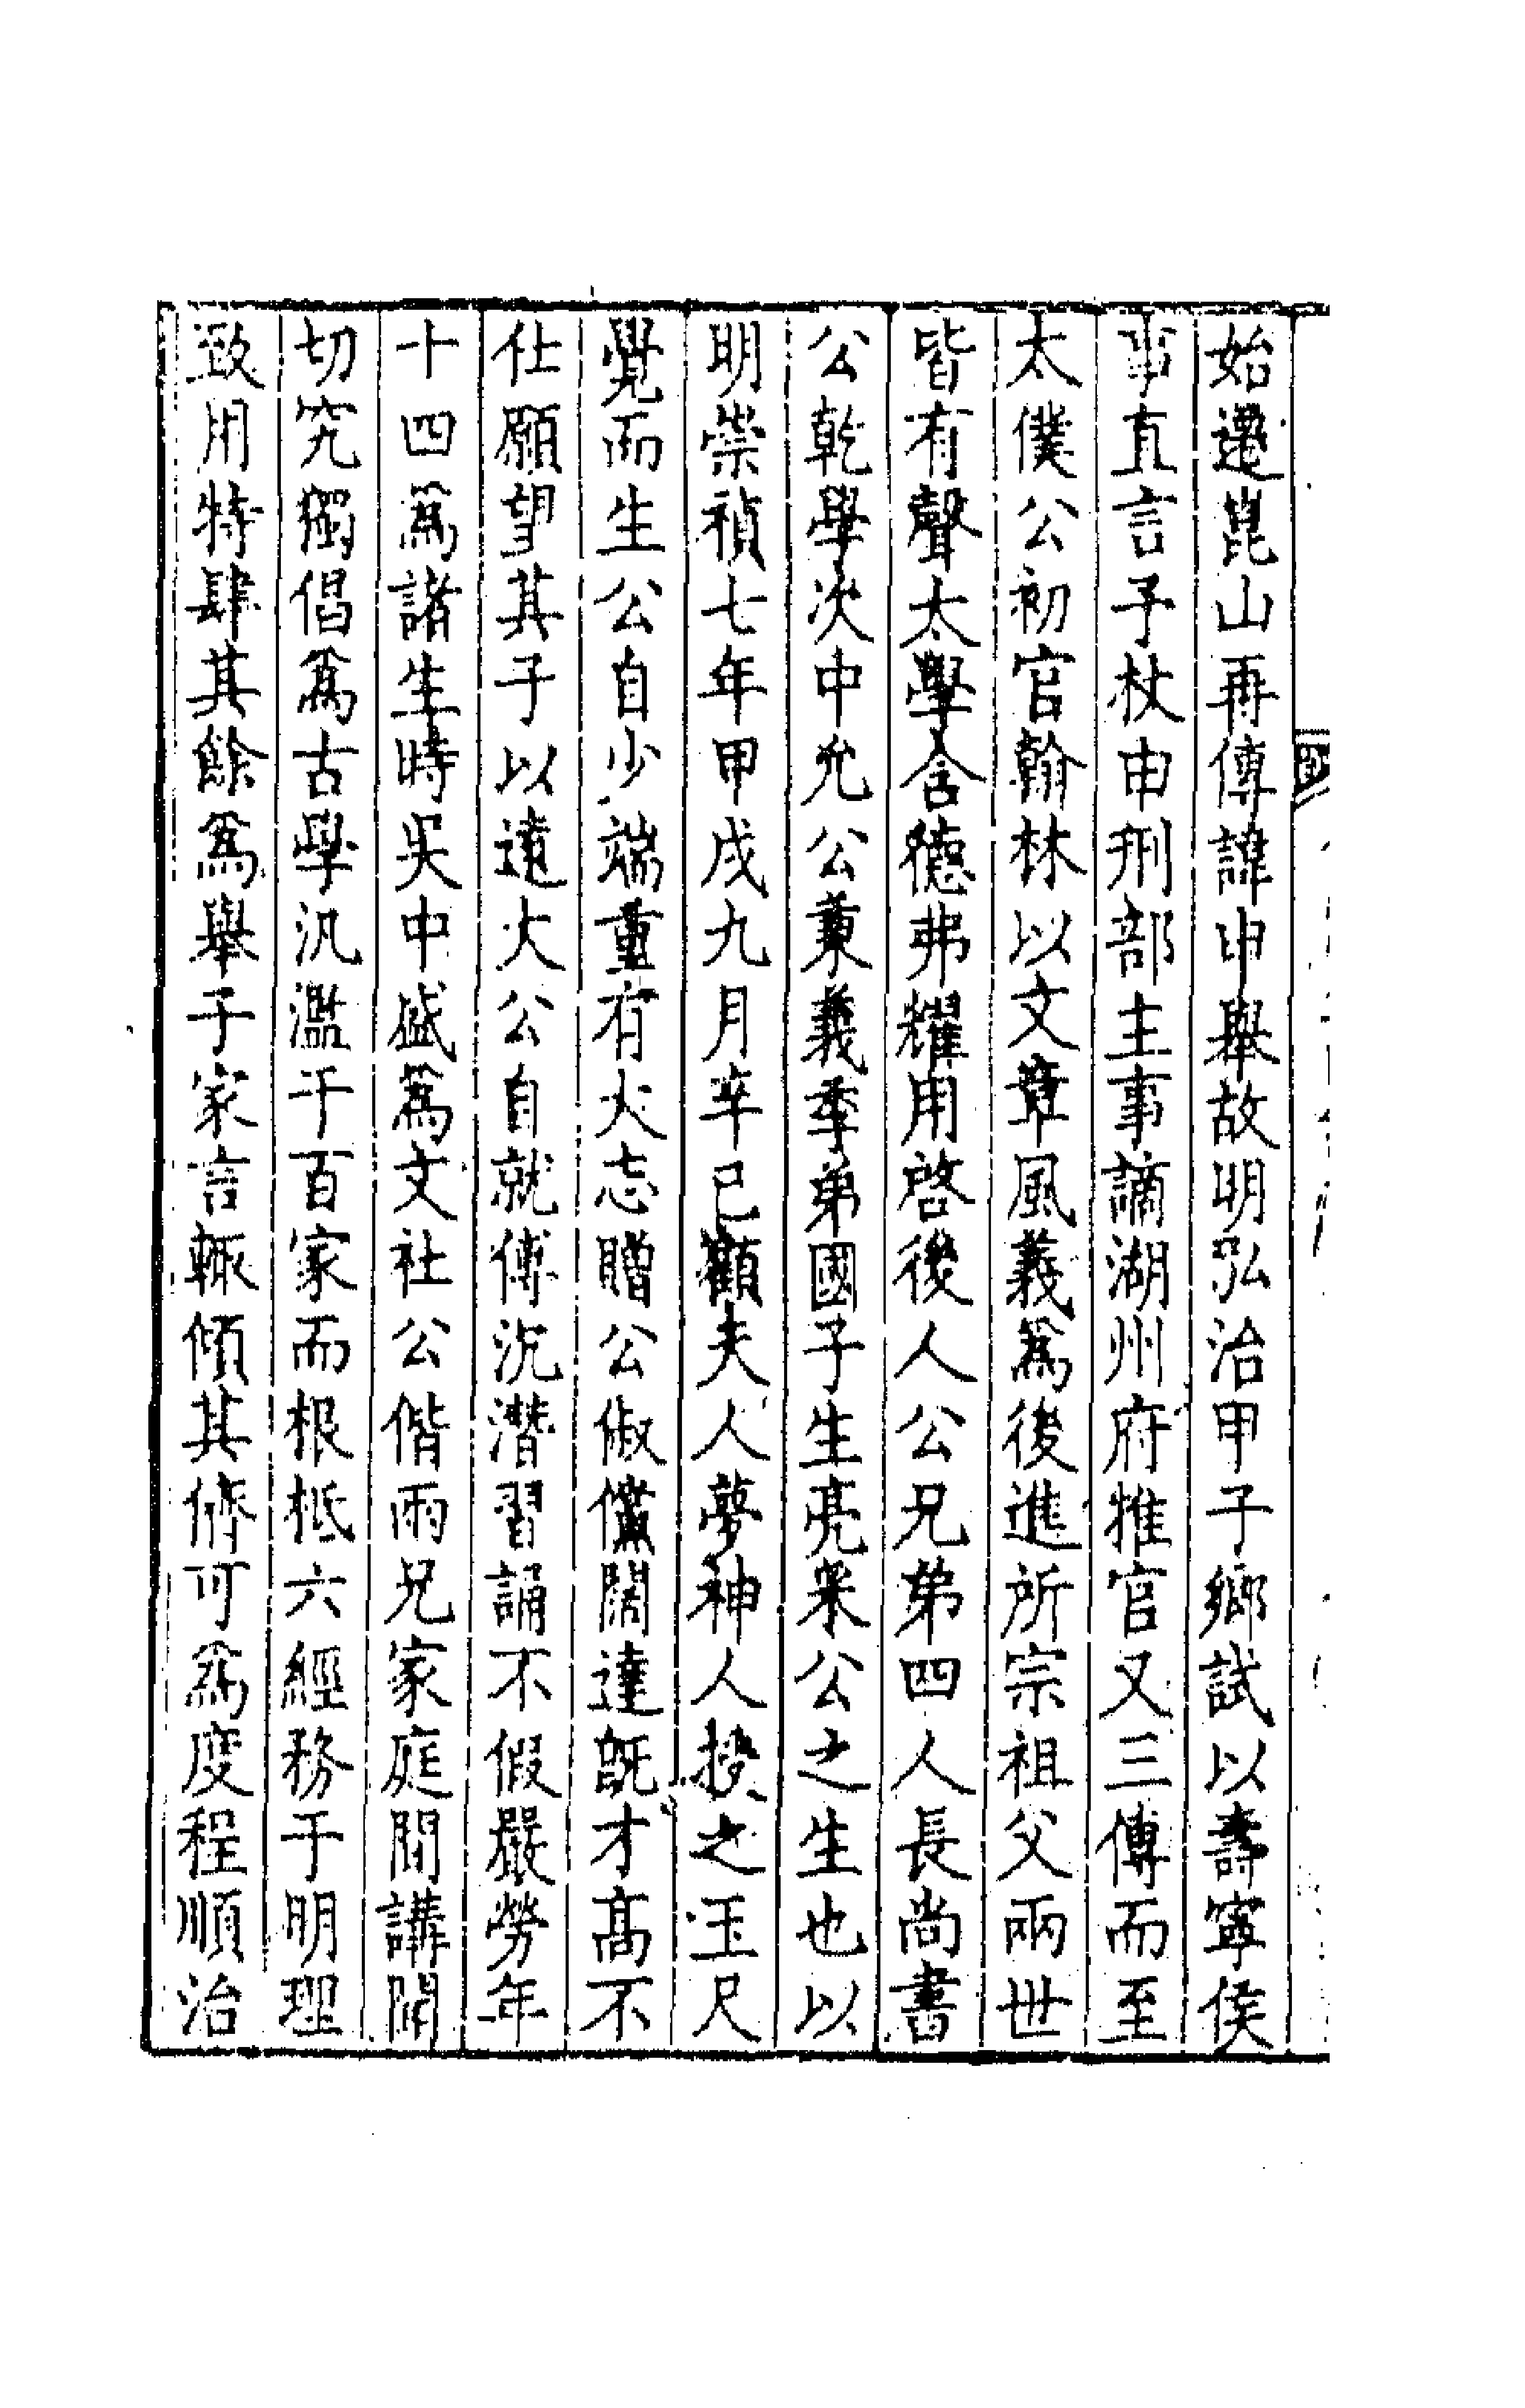 始遷崑山再傳諱申舉故明弘治甲子鄉試以壽寧侯
事直言予杖由刑部主事謫湖州府推官又三傳而至
太僕公初官翰林以文章風義爲後進所宗祖父兩世
皆有聲太學含德弗耀用啓後人公兄弟四人長尚書
公乾學次中允公秉義季弟國子生亮采公之生也以
明崇禎七年甲戌九月辛巳顧夫人夢神人授之玉尺
覺而生公自少端重有大志贈公俶儻闊達旣才高不
仕願望其子以遠大公自就傅沉潛習誦不假嚴勞年
十四爲諸生時吳中盛爲文社公偕兩兄家庭間講聞
切究獨倡爲古學汎濫于百家而根柢六經務于明理
致用特肆其餘爲舉子家言輙傾其儕可爲度程順治